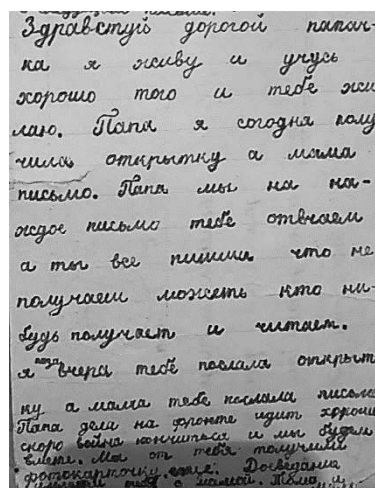 Здравстуй дорогой папач-
ка я живу и учусь
хорошо того и тебе жи
лаю. Папа я согодня полу
чила открытку а мама
письмо. Папа мы на ка-
ждое письмо тебе отвчаем
а ты все пишиш что не
получаеш можеть кто ни-
будь получает и читает.
я папа вчера тебе послала открыт
ку а мама тебе послала письмо
Папа дела на фронте идит хорошо
скоро война кончиться и мы будем
вмете. Мы от тебя получили
фотокарточку. Досведания
тебя с мамой. Тома и